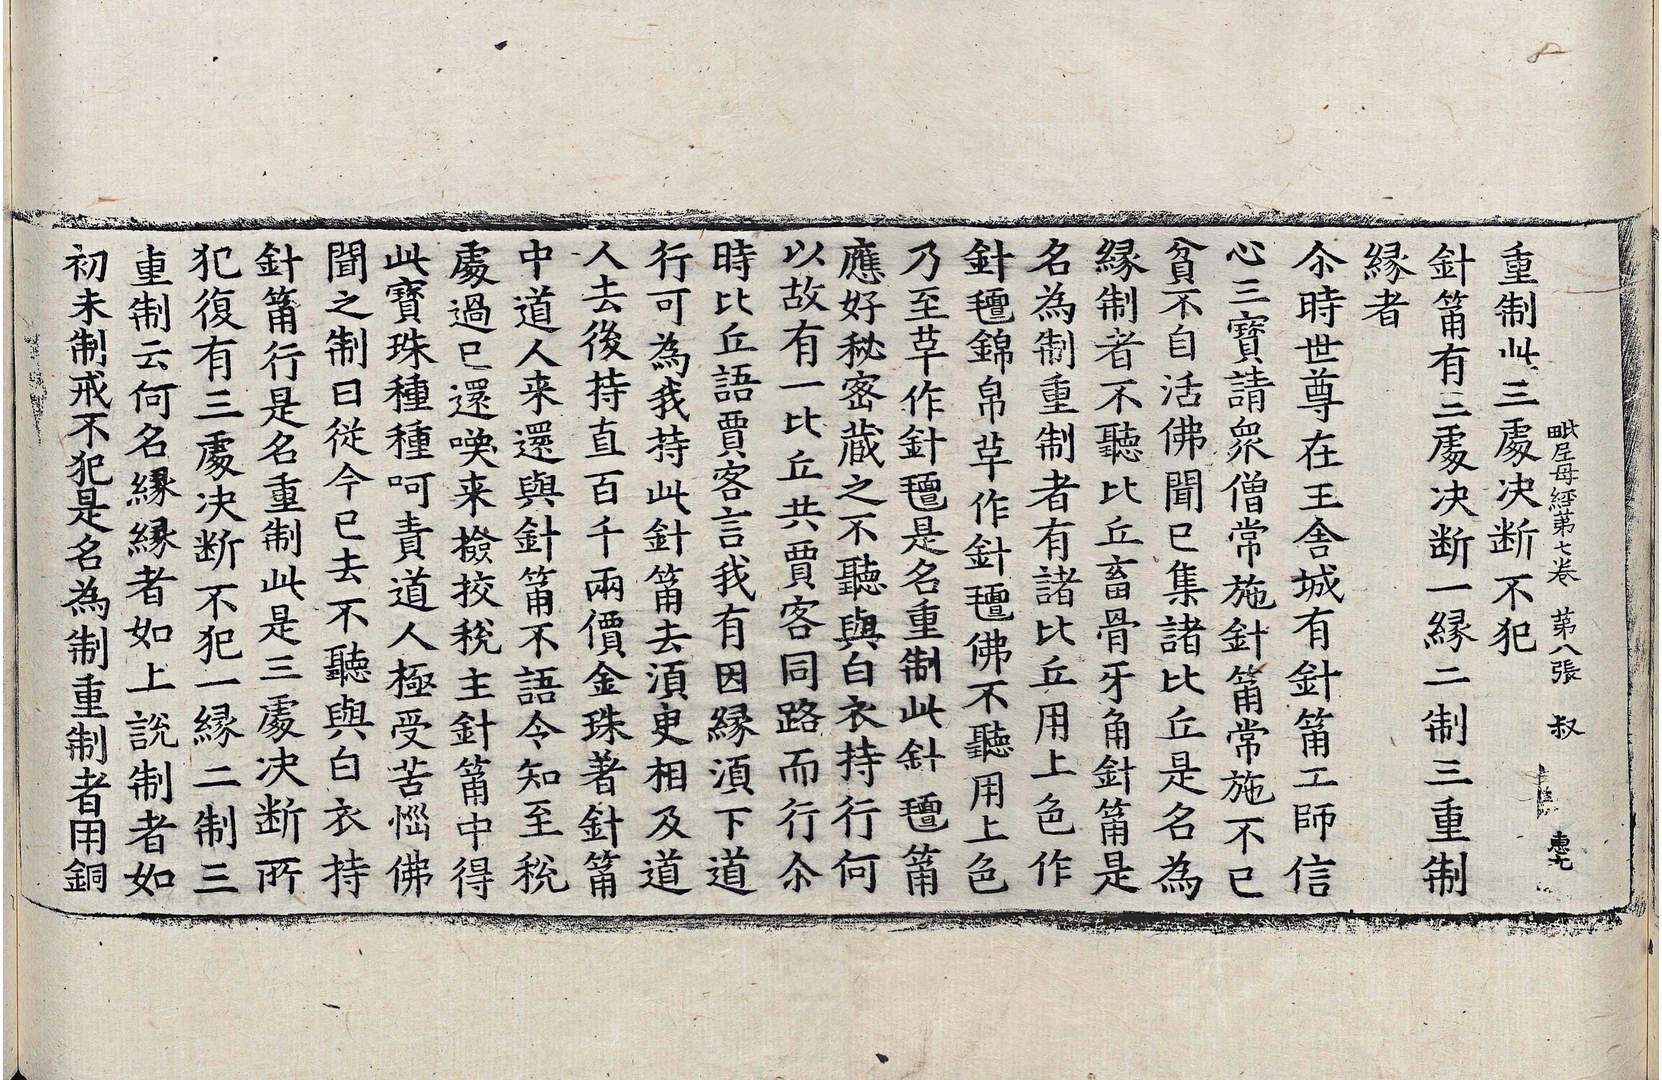 毗尼母經第七卷 第八張 叔
重制此三處決断不犯
針筩有三處决断一縁二制三重制
縁者
尒時世尊在王舍城有針筩工師信
心三寶請衆僧常施針筩常施不已
貧不自活佛聞已集諸比丘是名為
縁制者不聽比丘畜骨牙角針筩是
名為制重制者有諸比丘用上色作
針氊錦帛草作針氊佛不聽用上色
乃至草作針氊是名重制此針氊筩
應好秘密藏之不聽與白衣持行何
以故有一比丘共賈客同路而行尒
時比丘語賈客言我有因縁湏下道
行可為我持此針筩去湏臾相及道
人去後持直百千兩價金珠著針筩
中道人来還與針筩不語令知至稅
處過已還喚来撿挍稅主針筩中得
此寶珠種種呵責道人極受苦惱佛
聞之制曰從今已去不聽與白衣持
針筩行是名重制此是三處决断所
犯復有三處决断不犯一縁二制三
重制云何名縁縁者如上說制者如
初未制戒不犯是名為制重制者用銅